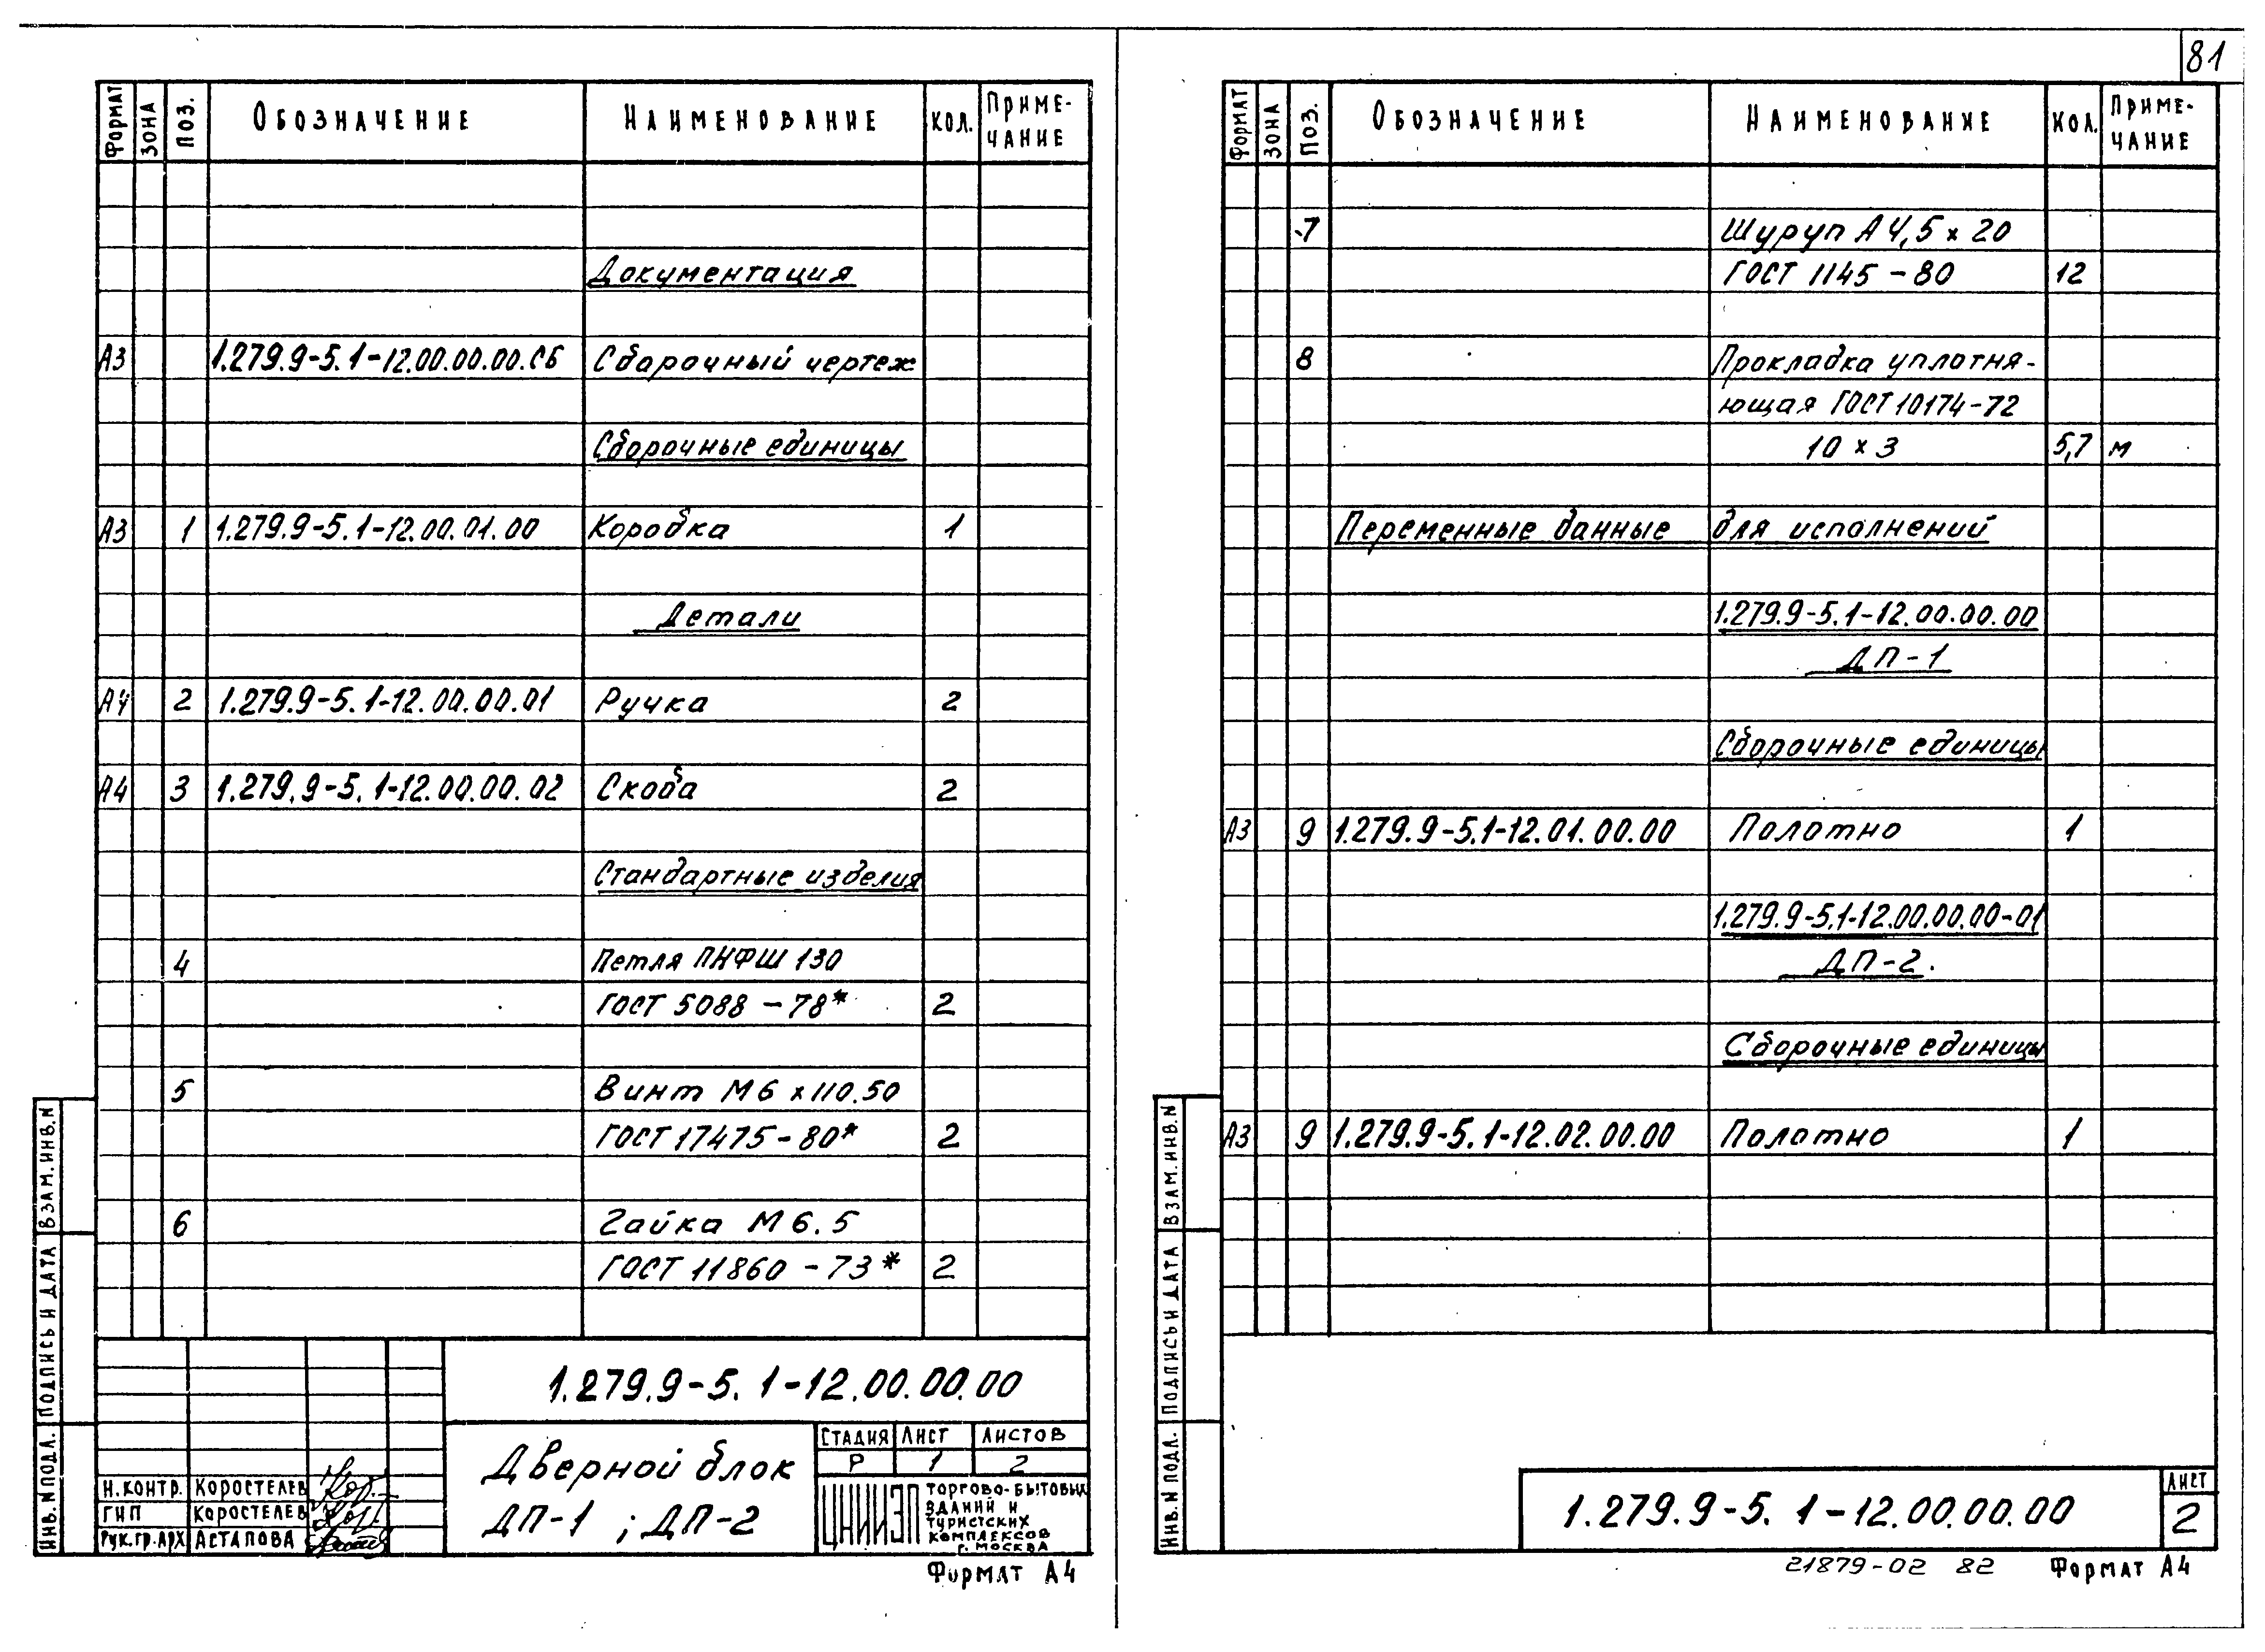 81
Формат Зона Поз. Обозначение Наименование Кол. Приме-
чание
Документация
А3 1.279.9-5.1-12.00.00.00.СБ Сборочный чертеж
Сборочные единицы
А3 1 1.279.9-5.1-12.00.01.00 Коробка 1
Детали
А4 2 1.279.9-5.1-12.00.00.01 Ручка 2
А4 3 1.279.9-5.1-12.00.00.02 Скоба 2
Стандартные изделия
4 Петля ПНФШ 130
ГОСТ 5088-78* 2
5 Винт М6х110.50
ГОСТ 17475-80* 2
6 Гайка М6.5
ГОСТ 11860-73* 2
Взам.инв.N
Подпись и дата
Инв.N подл.
1.279.9-5.1-12.00.00.00
Дверной блок
ДП-1; ДП-2
Стадия Лист Листов
Р 1 2
Н.контр. Коростелев
ГИП Коростелев
Рук.гр.арх Астапова
ЦНИИЭП
торгово-бытовых
зданий и
туристских
комплексов
г. Москва
Формат А4
Формат Зона Поз. Обозначение Наименование Кол. Приме-
чание
7 Шуруп А4,5х20
ГОСТ 1145-80 12
8 Прокладка уплотня-
ющая ГОСТ 10174-72
10х3 5,7 м
Переменные данные для исполнений
1.279.9-5.1-12.00.00.00
ДП-1
Сборочные единицы
А3 9 1.279.9-5.1-12.01.00.00 Полотно 1
1.279.9-5.1-12.00.00.00-01
ДП-2.
Сборочные единицы
А3 9 1.279.9-5.1-12.02.00.00 Полотно 1
Взам.инв.N
Подпись и дата
Инв.N подл.
1.279.9-5.1-12.00.00.00
Лист
2
21879-02 82 Формат А4